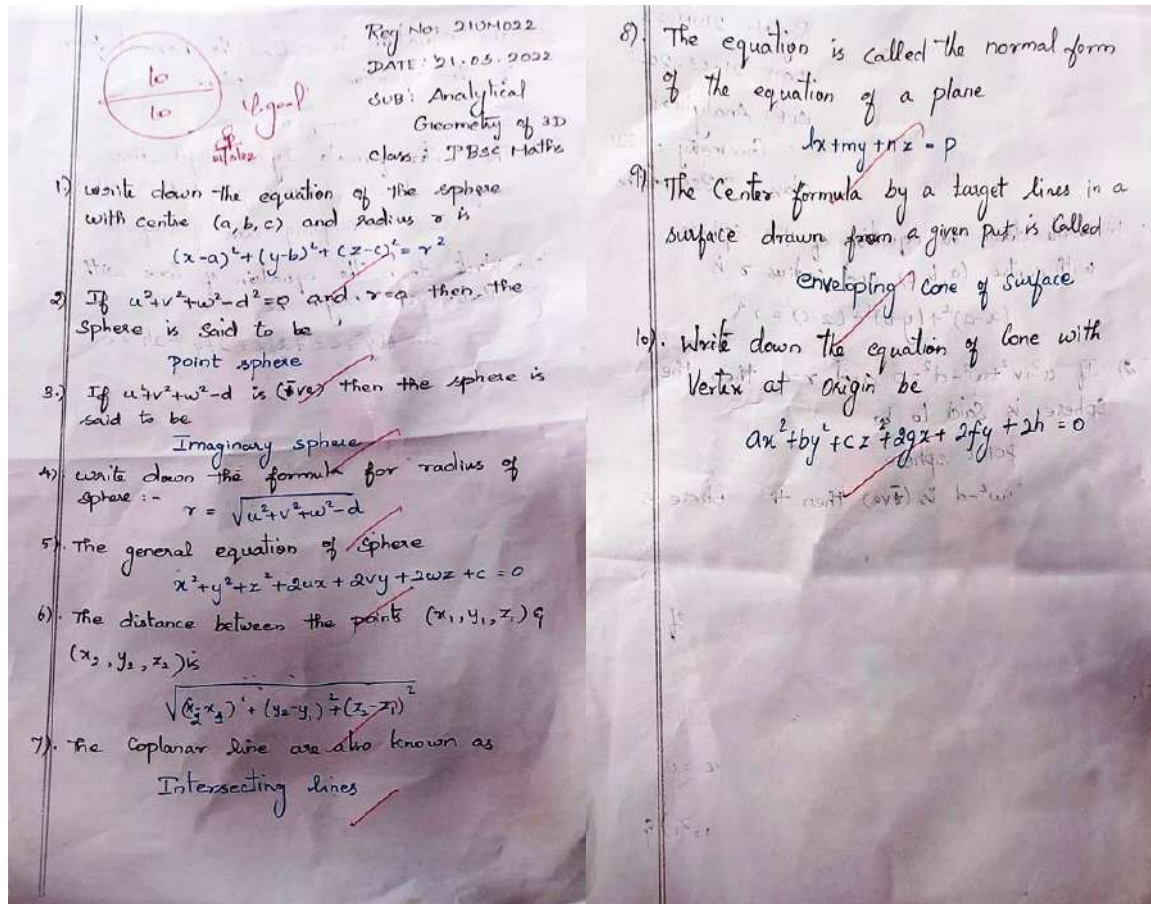 10
10
V.good
Reg No: 21UM022
DATE: 21.05.2022
SUB: Analytical
Geometry of 3D
class: I BSC Maths
1) write down the equation of the sphere
with centre (a, b, c) and radius r is
(x-a)²+(y-b)²+(z-c)²=r²
2) If u²+v²+w²-d²=0 and r=0 then the
Sphere is said to be
point sphere
3.) If u²+v²+w²-d is (-ve) then the sphere is
said to be
Imaginary sphere
4) write down the formula for radius of
sphere :-
r = √u²+v²+w²-d
5). The general equation of sphere
x²+y²+z²+2ux+2vy+2wz+c=0
6). The distance between the points (x₁,y₁,z₁) &
(x₂,y₂,z₂) is
√(x₂-x₁)²+(y₂-y₁)²+(z₂-z₁)²
7). The Coplanar line are also known as
Intersecting lines
8). The equation is called the normal form
of the equation of a plane
lx+my+nz=p
9). The Center formula by a target lines in a
surface drawn from a given put is Called
enveloping cone of surface
10). Write down the equation of Cone with
Vertex at origin be
ax²+by²+cz²+2gx+2fy+2h=0